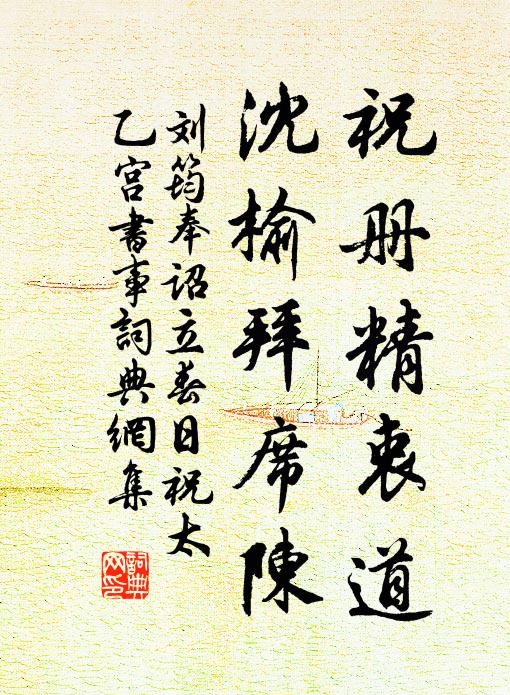 祝册精衷道
沈榆拜席陳
刘筠奉詔立春日祝太
乙宫書事詞典網集
詞典
网印